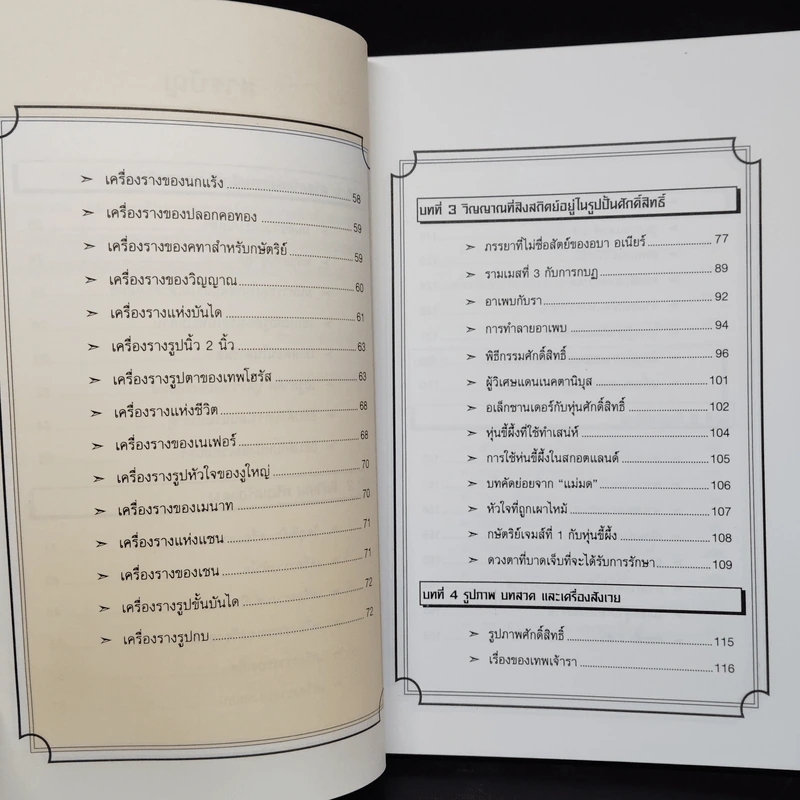 ➣ เครื่องรางของนกแร้ง 58
➣ เครื่องรางของปลอกคอทอง 59
➣ เครื่องรางของคทาสำหรับกษัตริย์ 59
➣ เครื่องรางของวิญญาณ 60
➣ เครื่องรางแห่งบันได 61
➣ เครื่องรางรูปนิ้ว 2 นิ้ว 63
➣ เครื่องรางรูปตาของเทพโฮรัส 63
➣ เครื่องรางแห่งชีวิต 68
➣ เครื่องรางของเนเฟอร์ 68
➣ เครื่องรางรูปหัวใจของงูใหญ่ 70
➣ เครื่องรางของเมนาท 70
➣ เครื่องรางแห่งแชน 71
➣ เครื่องรางของเชน 71
➣ เครื่องรางรูปขั้นบันได 72
➣ เครื่องรางรูปกบ 72
บทที่ 3 วิญญาณที่สิงสถิตย์อยู่ในรูปปั้นศักดิ์สิทธิ์
➣ ภรรยาที่ไม่ซื่อสัตย์ของอบา อเนียร์ 77
➣ รามเมสที่ 3 กับการกบฏ 89
➣ อาเพบกับรา 92
➣ การทำลายอาเพบ 94
➣ พิธีกรรมศักดิ์สิทธิ์ 96
➣ ผู้วิเศษแดนเนคตานิบุส 101
➣ อเล็กซานเดอร์กับหุ่นศักดิ์สิทธิ์ 102
➣ หุ่นขี้ผึ้งที่ใช้ทำเสน่ห์ 104
➣ การใช้ห่นขี้ผึ้งในสกอตแลนด์ 105
➣ บทคัดย่อยจาก “แม่มด” 106
➣ หัวใจที่ถูกเผาไหม้ 107
➣ กษัตริย์เจมส์ที่ 1 กับหุ่นขี้ผึ้ง 108
➣ ดวงตาที่บาดเจ็บที่จะได้รับการรักษา 109
บทที่ 4 รูปภาพ บทสวด และเครื่องสังเวย
➣ รูปภาพศักดิ์สิทธิ์ 115
➣ เรื่องของเทพเจ้ารา 116